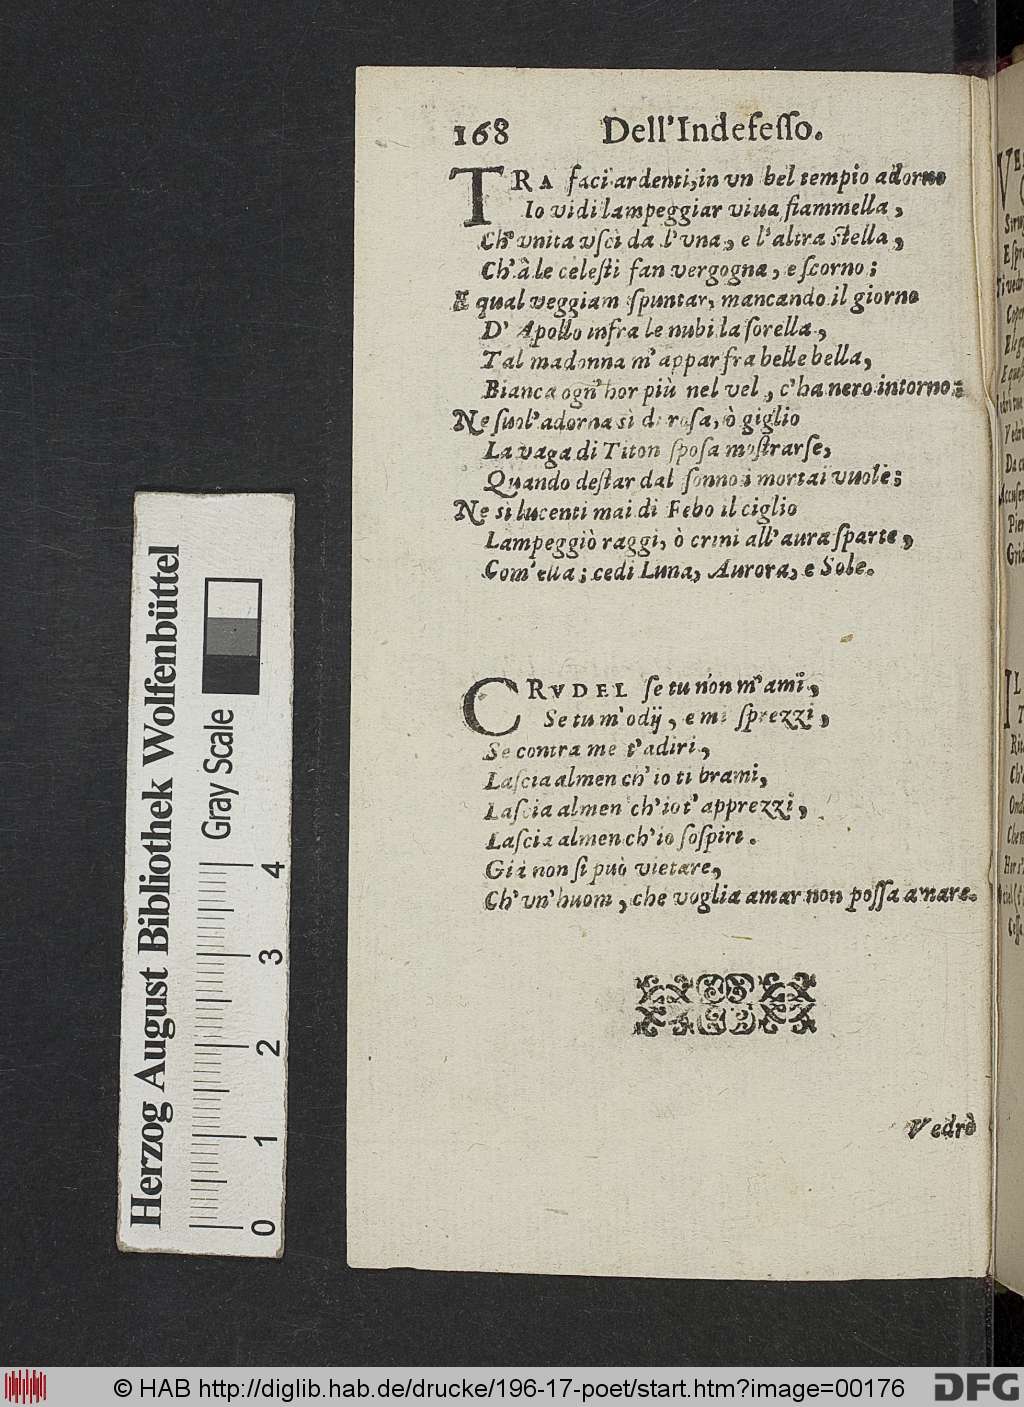 168 Dell'Indefeſſo.
TRA faci ardenti, in vn bel tempio adorno
Io vidi lampeggiar viua fiammella,
Ch' vnita vſcì da l'vna, e l'altra ſtella,
Ch'à le celeſti fan vergogna, e ſcorno;
E qual veggiam ſpuntar, mancando il giorno
D' Apollo infra le nubi la ſorella,
Tal madonna m' appar fra belle bella,
Bianca ogn'hor più nel vel, c'ha nero intorno:
Ne ſuol' adorna sì di roſa, ò giglio
La vaga di Titon ſpoſa moſtrarſe,
Quando deſtar dal ſonno i mortai vuole;
Ne sì lucenti mai di Febo il ciglio
Lampeggiò raggi, ò crini all'aura ſparte,
Com' ella; cedi Luna, Aurora, e Sole.
CRVDEL ſe tu non m' ami,
Se tu m' odij, e mi ſprezzi,
Se contra me t'adiri,
Laſcia almen ch' io ti brami,
Laſcia almen ch'io t' apprezzi,
Laſcia almen ch'io ſoſpiri.
Già non ſi può vietare,
Ch' vn' huom, che voglia amar non poſſa amare.
Vedrò
Herzog August Bibliothek Wolfenbüttel
Gray Scale
0 1 2 3 4
© HAB http://diglib.hab.de/drucke/196-17-poet/start.htm?image=00176
DFG